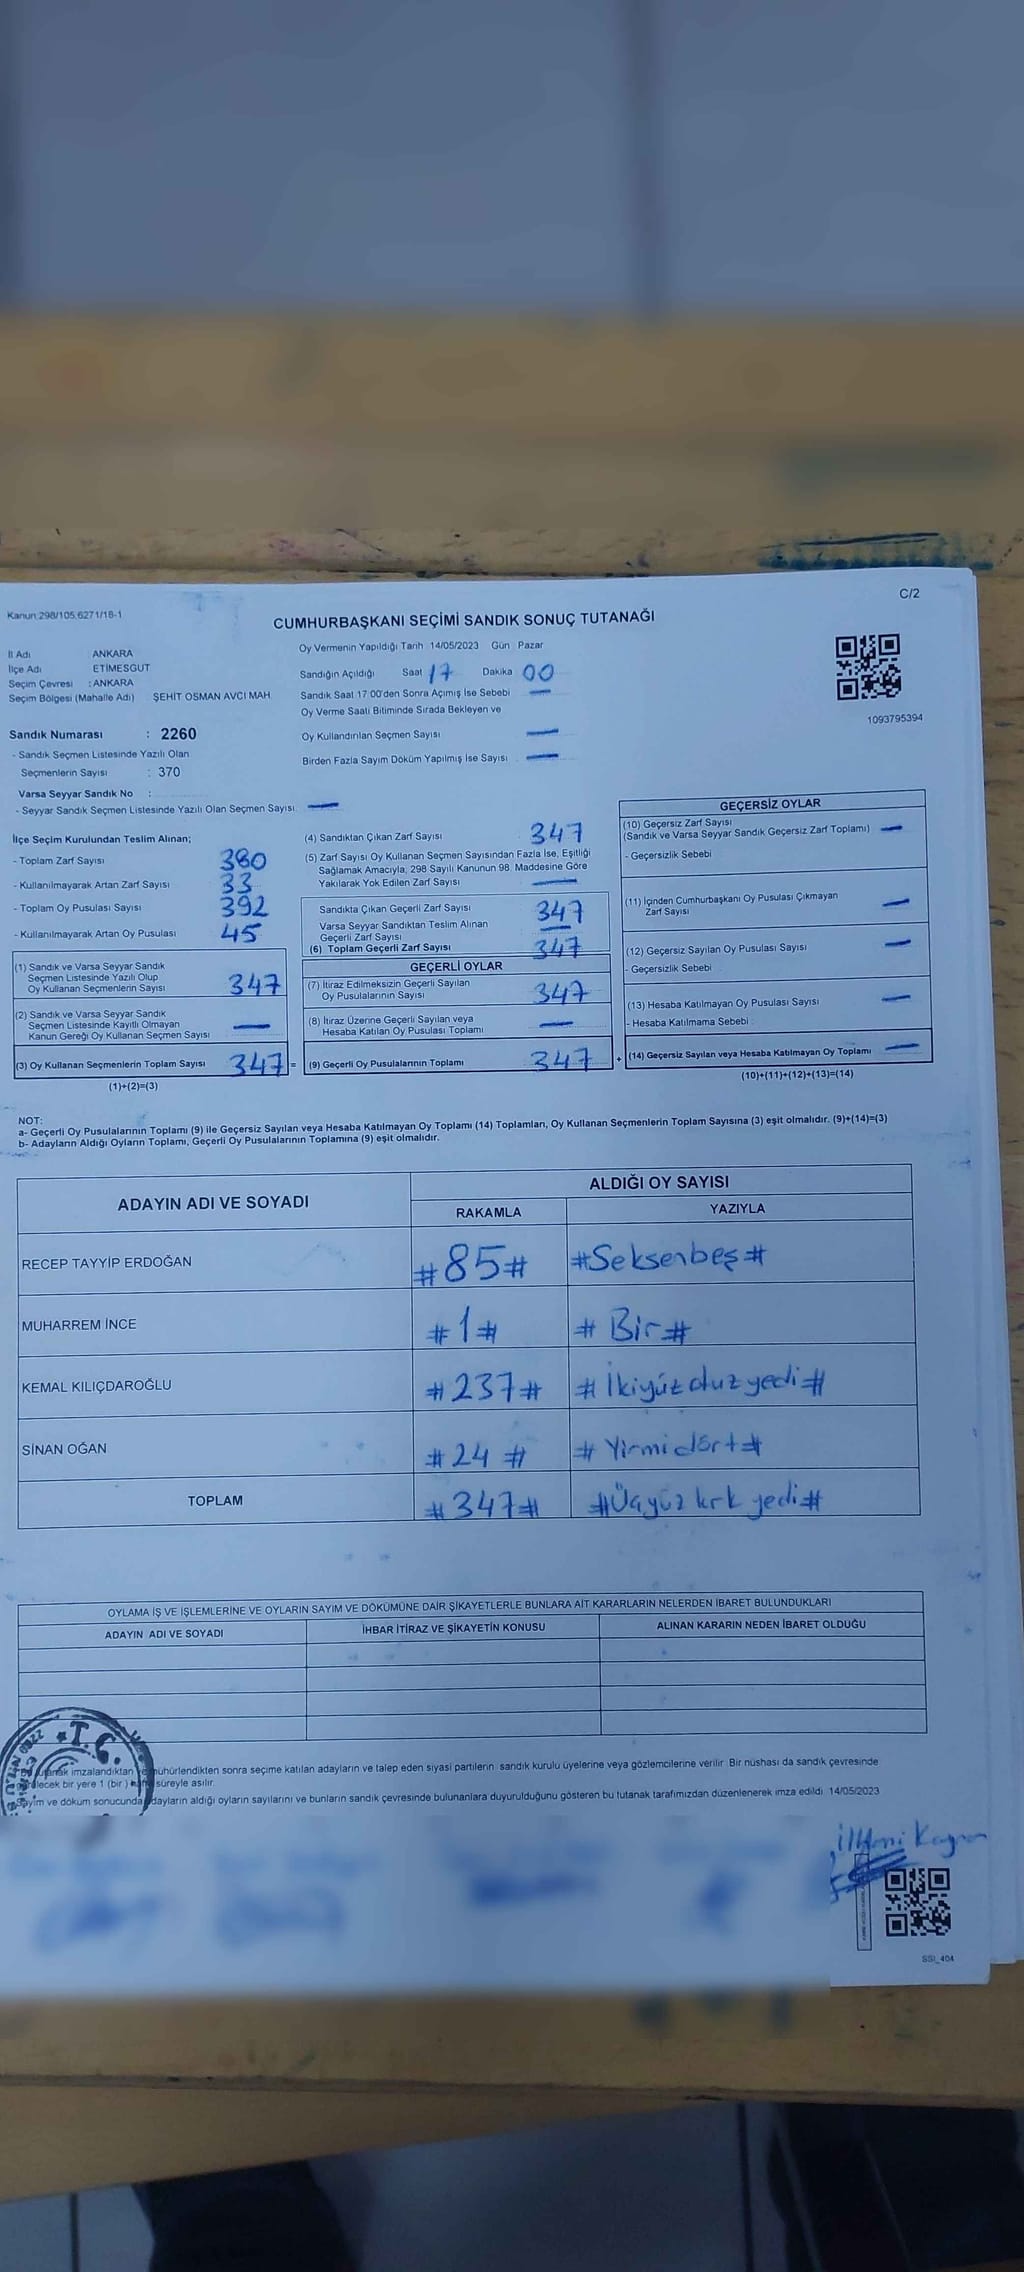 C/2
Kanun:298/105,6271/18-1
CUMHURBAŞKANI SEÇİMİ SANDIK SONUÇ TUTANAĞI
İl Adı ANKARA
İlçe Adı ETİMESGUT
Seçim Çevresi : ANKARA
Seçim Bölgesi (Mahalle Adı) ŞEHİT OSMAN AVCI MAH.
Oy Vermenin Yapıldığı Tarih 14/05/2023 Gün Pazar
Sandığın Açıldığı Saat 17 Dakika 00
Sandık Saat 17:00'den Sonra Açımış İse Sebebi —
Oy Verme Saati Bitiminde Sırada Bekleyen ve
Oy Kullandırılan Seçmen Sayısı —
Birden Fazla Sayım Döküm Yapılmış İse Sayısı —
1093795394
Sandık Numarası : 2260
- Sandık Seçmen Listesinde Yazılı Olan
Seçmenlerin Sayısı : 370
Varsa Seyyar Sandık No :
- Seyyar Sandık Seçmen Listesinde Yazılı Olan Seçmen Sayısı: —
İlçe Seçim Kurulundan Teslim Alınan;
- Toplam Zarf Sayısı 380
- Kullanılmayarak Artan Zarf Sayısı 33
- Toplam Oy Pusulası Sayısı 392
- Kullanılmayarak Artan Oy Pusulası 45
(1) Sandık ve Varsa Seyyar Sandık
Seçmen Listesinde Yazılı Olup
Oy Kullanan Seçmenlerin Sayısı 347
(2) Sandık ve Varsa Seyyar Sandık
Seçmen Listesinde Kayıtlı Olmayan
Kanun Gereği Oy Kullanan Seçmen Sayısı —
(3) Oy Kullanan Seçmenlerin Toplam Sayısı 347 =
(1)+(2)=(3)
(4) Sandıktan Çıkan Zarf Sayısı 347
(5) Zarf Sayısı Oy Kullanan Seçmen Sayısından Fazla İse, Eşitliği
Sağlamak Amacıyla; 298 Sayılı Kanunun 98. Maddesine Göre
Yakılarak Yok Edilen Zarf Sayısı —
Sandıkta Çıkan Geçerli Zarf Sayısı 347
Varsa Seyyar Sandıktan Teslim Alınan
Geçerli Zarf Sayısı —
(6) Toplam Geçerli Zarf Sayısı 347
GEÇERLİ OYLAR
(7) İtiraz Edilmeksizin Geçerli Sayılan
Oy Pusulalarının Sayısı 347
(8) İtiraz Üzerine Geçerli Sayılan veya
Hesaba Katılan Oy Pusulası Toplamı —
(9) Geçerli Oy Pusulalarının Toplamı 347 +
GEÇERSİZ OYLAR
(10) Geçersiz Zarf Sayısı
(Sandık ve Varsa Seyyar Sandık Geçersiz Zarf Toplamı) —
- Geçersizlik Sebebi
(11) İçinden Cumhurbaşkanı Oy Pusulası Çıkmayan
Zarf Sayısı —
(12) Geçersiz Sayılan Oy Pusulası Sayısı —
- Geçersizlik Sebebi
(13) Hesaba Katılmayan Oy Pusulası Sayısı —
- Hesaba Katılmama Sebebi
(14) Geçersiz Sayılan veya Hesaba Katılmayan Oy Toplamı —
(10)+(11)+(12)+(13)=(14)
NOT:
a- Geçerli Oy Pusulalarının Toplamı (9) ile Geçersiz Sayılan veya Hesaba Katılmayan Oy Toplamı (14) Toplamları, Oy Kullanan Seçmenlerin Toplam Sayısına (3) eşit olmalıdır. (9)+(14)=(3)
b- Adayların Aldığı Oyların Toplamı, Geçerli Oy Pusulalarının Toplamına (9) eşit olmalıdır.
ADAYIN ADI VE SOYADI ALDIĞI OY SAYISI
RAKAMLA YAZIYLA
RECEP TAYYİP ERDOĞAN #85# #Seksenbeş#
MUHARREM İNCE #1# #Bir#
KEMAL KILIÇDAROĞLU #237# #İkiyüzotuzyedi#
SİNAN OĞAN #24# #Yirmidört#
TOPLAM #347# #Üçyüz kırk yedi#
OYLAMA İŞ VE İŞLEMLERİNE VE OYLARIN SAYIM VE DÖKÜMÜNE DAİR ŞİKAYETLERLE BUNLARA AİT KARARLARIN NELERDEN İBARET BULUNDUKLARI
ADAYIN ADI VE SOYADI İHBAR İTİRAZ VE ŞİKAYETİN KONUSU ALINAN KARARIN NEDEN İBARET OLDUĞU
T.C.
imzalandıktan ve mühürlendikten sonra seçime katılan adayların ve talep eden siyasi partilerin sandık kurulu üyelerine veya gözlemcilerine verilir. Bir nüshası da sandık çevresinde
bir yere 1 (bir ) süreyle asılır.
Sayım ve döküm sonucunda adayların aldığı oyların sayılarını ve bunların sandık çevresinde bulunanlara duyurulduğunu gösteren bu tutanak tarafımızdan düzenlenerek imza edildi. 14/05/2023
SSI_404